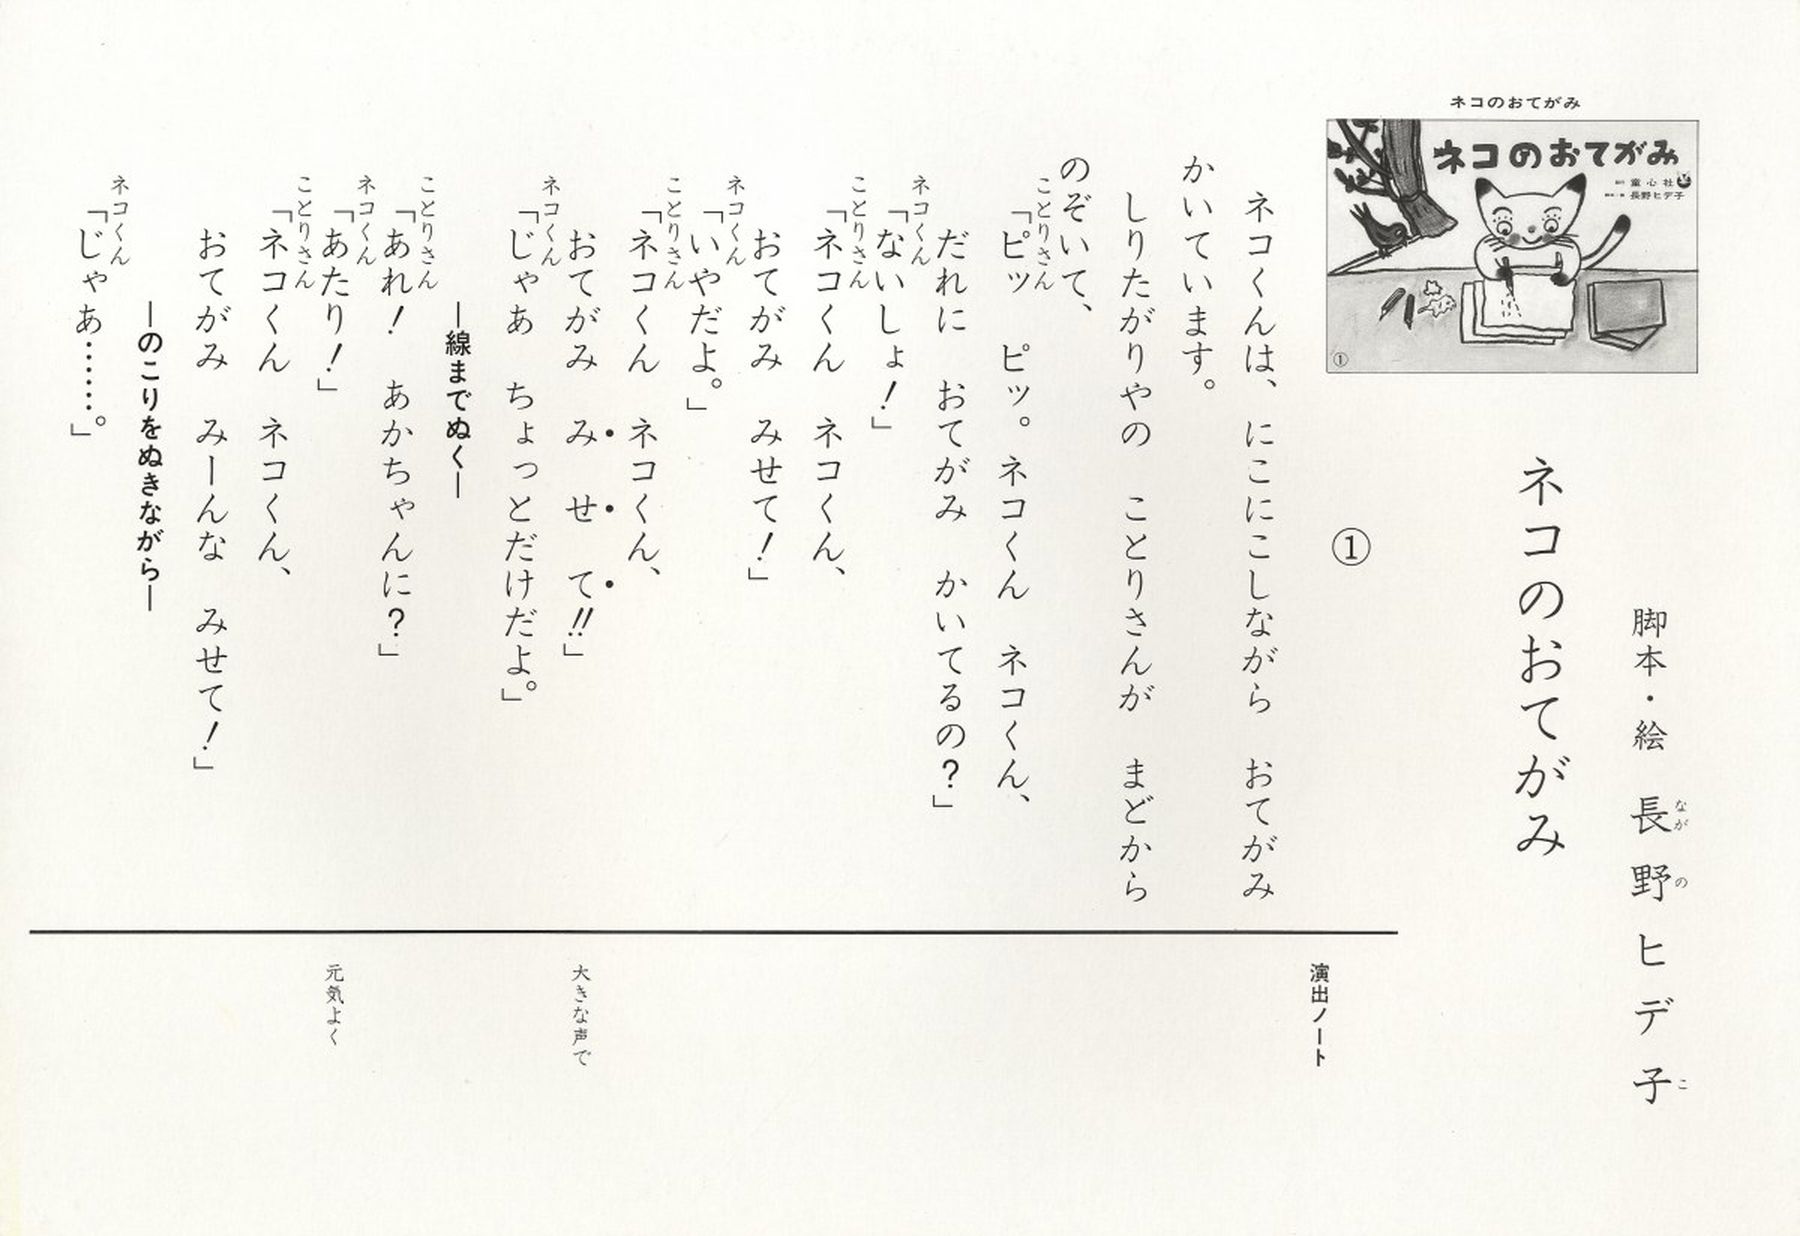 ネコのおてがみ
ネコのおてがみ
童心社
長野ヒデ子
①
脚本・絵 長野ヒデ子
なが の こ
ネコのおてがみ
①
ネコくんは、にこにこしながら おてがみ
かいています。
しりたがりやの ことりさんが まどから
のぞいて、
ことりさん
「ピッ ピッ。ネコくん ネコくん、
だれに おてがみ かいてるの?」
ネコくん
「ないしょ!」
ことりさん
「ネコくん ネコくん、
おてがみ みせて!」
ネコくん
「いやだよ。」
ことりさん
「ネコくん ネコくん、
おてがみ みせて!!」
ネコくん
「じゃあ ちょっとだけだよ。」
―線までぬく―
ことりさん
「あれ! あかちゃんに?」
ネコくん
「あたり!」
ことりさん
「ネコくん ネコくん、
おてがみ みーんな みせて!」
―のこりをぬきながら―
ネコくん
「じゃあ……。」
演出ノート
大きな声で
元気よく